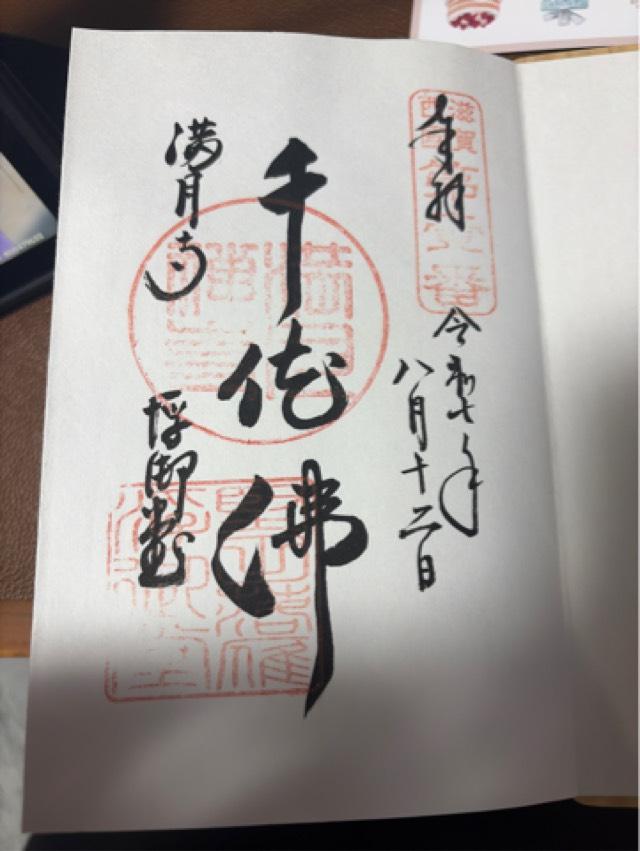 奉拝
令和七年
八月十二日
千体佛
満月寺
浮御堂
滋賀
西国